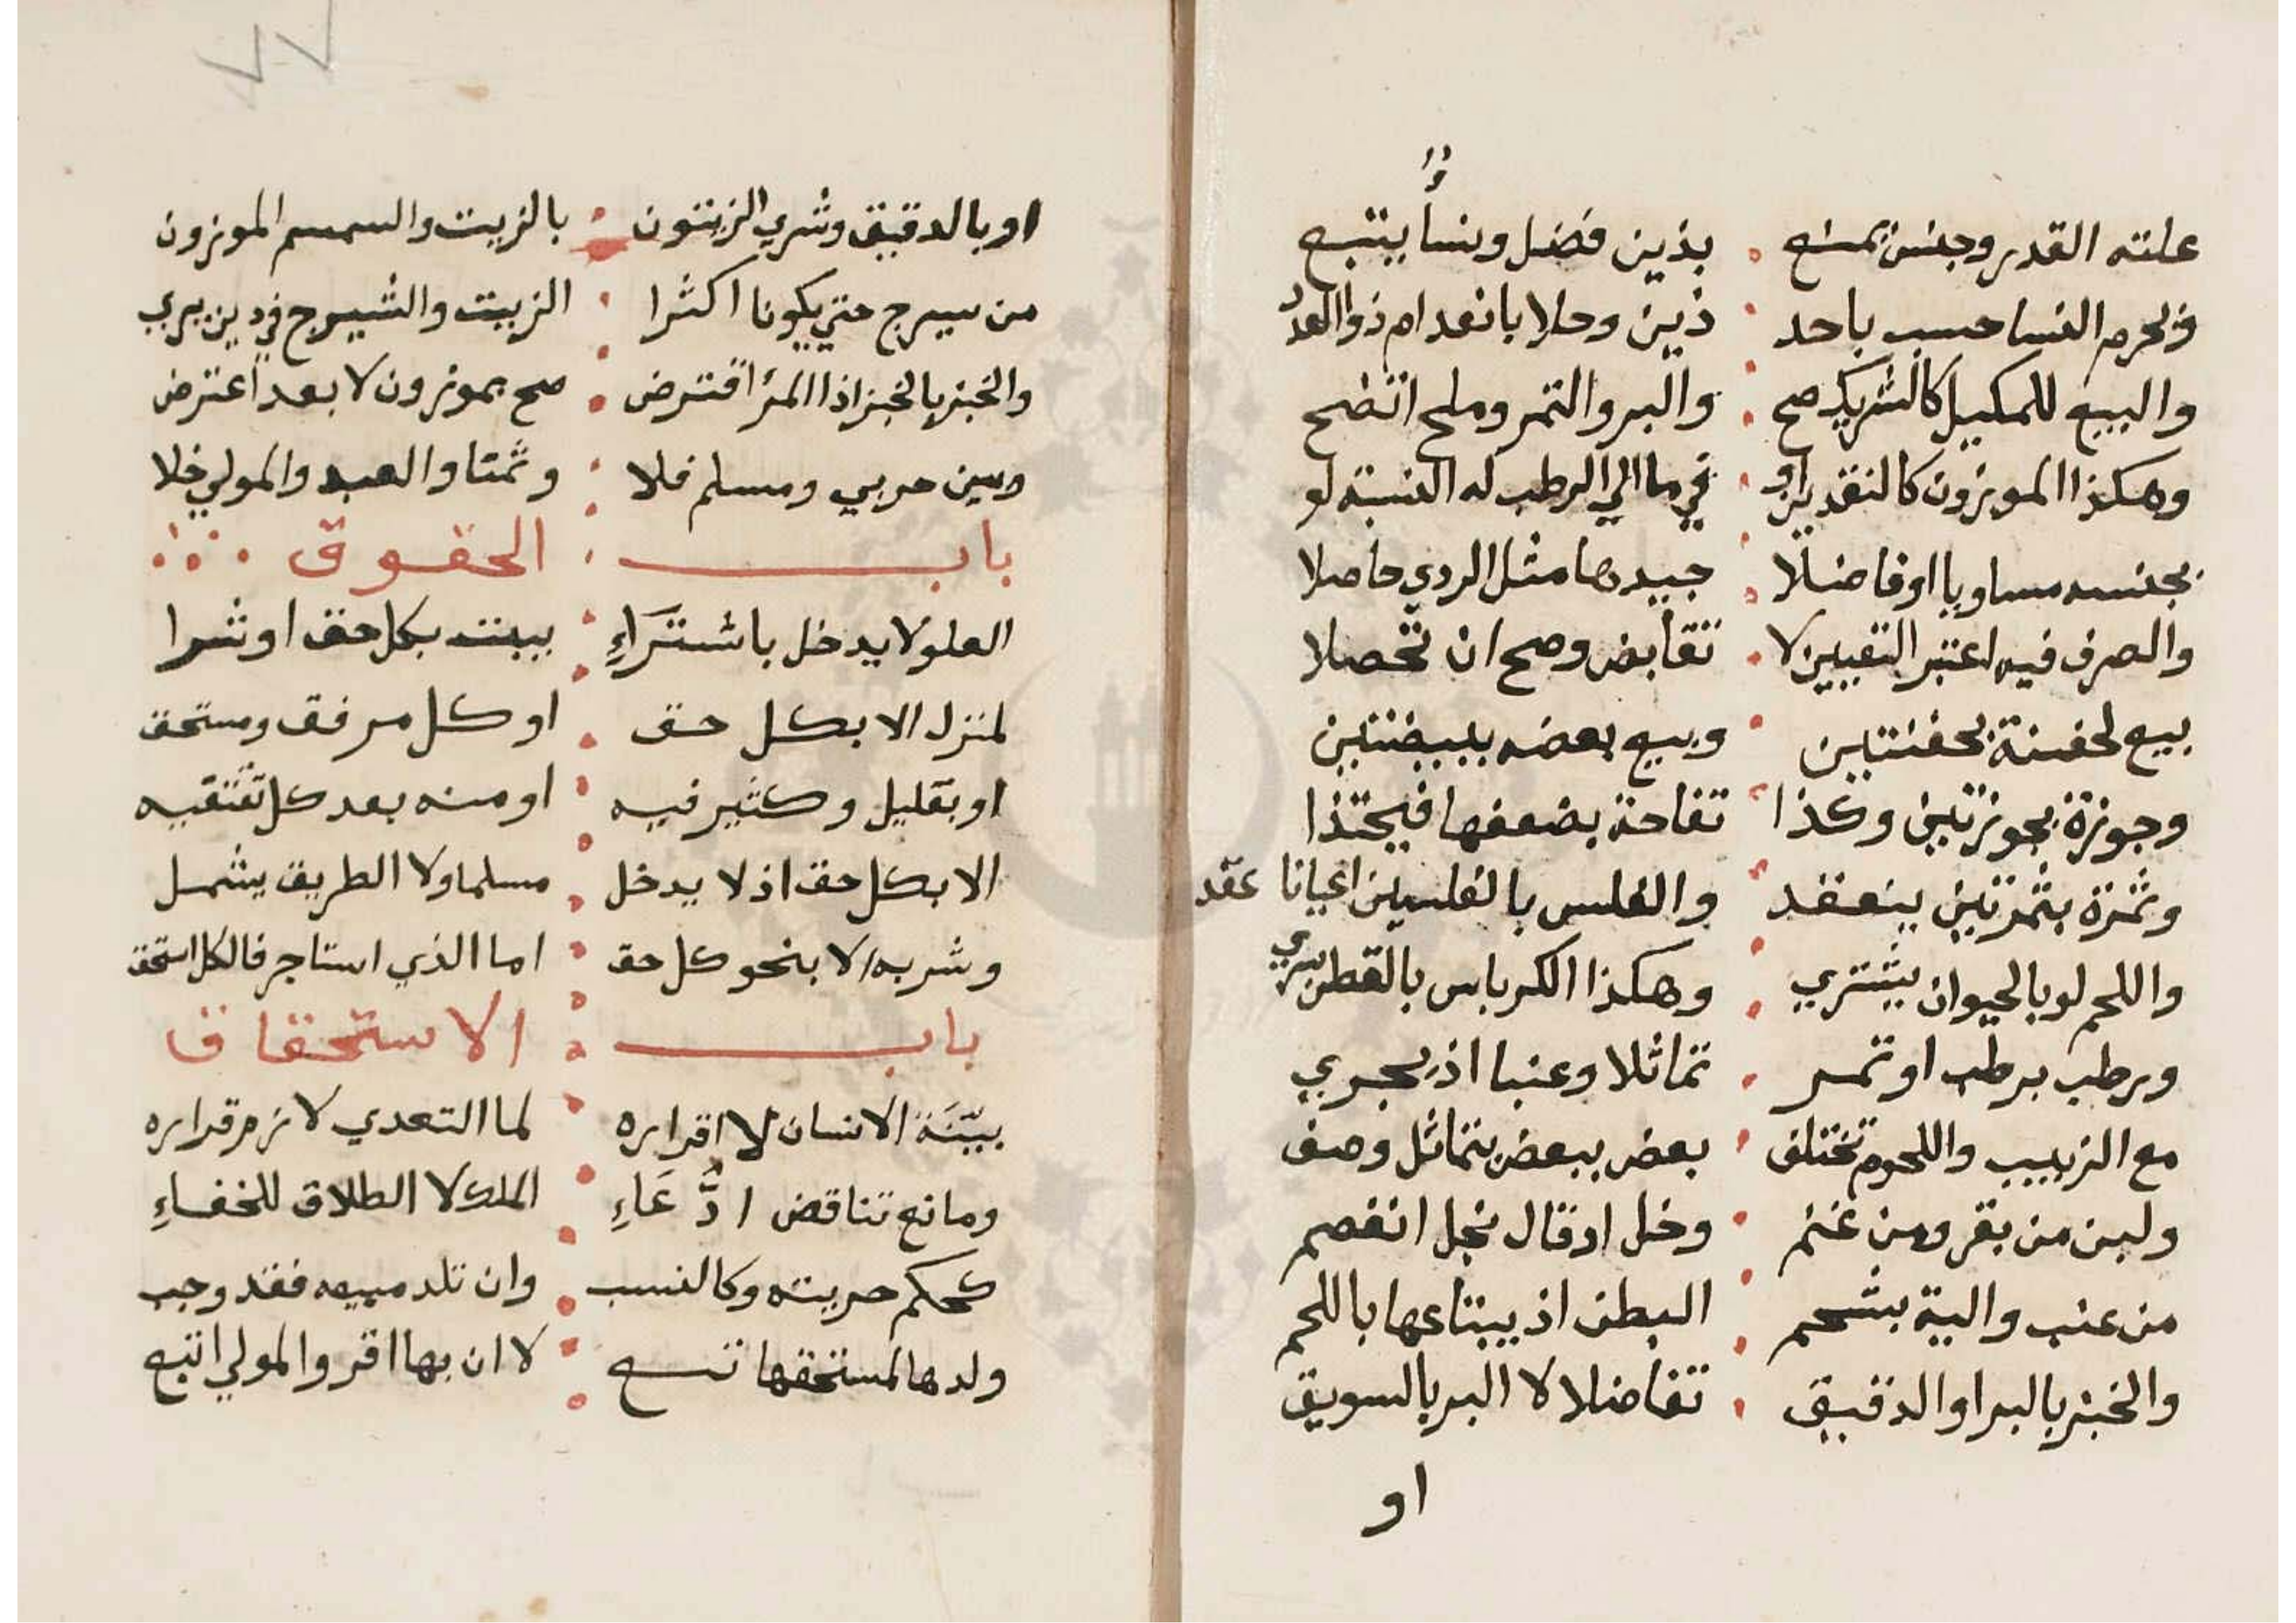 علته القدر وجنس يمنع بذين فضل ونسا يتبع
ويحرم النسا حسب باحد ذين وحلا بانعدام ذو العد
والبيع للمكيل كالشريك صح والبر والتمر وملح اتضح
وهكذا الموزون كالنقدين او في ما الي الرطب له النسبة لو
بجنسه مساويا او فاضلا جيدها مثل الردي حاصلا
والصرف فيه اعتبر التعيين لا تقابض وصح ان تحصلا
بيع لحفنة بحفنتين وبيع بعضه ببيضتين
وجوزة بجوزتين وكذا تفاحة بضعفها فيحتذا
وثمرة بثمرتين ينعقد والفلس بالفلسين اعيانا عقد
واللحم لو بالحيوان يشتري وهكذا الكرباس بالقطن يري
ورطب برطب او تمر تماثلا وعنبا اذ يجري
مع الزبيب واللحوم تختلف بعض ببعض بتماثل وصف
ولبن من بقر ومن غنم وخل ادقال نجل انفصم
من عنب والية بشحم البطن اذ يبتاعها باللحم
والخبز بالبر او الدقيق تفاضلا لا البر بالسويق
او
٧٧
او بالدقيق وشري الزيتون بالزيت والسمسم الموزون
من سيرج حتي يكونا اكثرا الزيت والشيرج في دين يري
والخبز بالخبز اذا المرؤ اقترض صح بموزون لا بعد اعترض
وبين حربي ومسلم فلا وثمتا والعبد والمولي خلا
باب الحقوق
العلو لا يدخل باشتراء بيت بكل حق او شرا
لمنزل الا بكل حق او كل مرفق ومستحق
او بقليل وكثير فيه او منه بعد كل تقتفيه
الا بكل حق اذ لا يدخل مسلما ولا الطريق يشمل
وشربه الا بنحو كل حق اما الذي استاجر فالكل استحق
باب الاستحقاق
بيّنَة الانسان لا اقراره لما التعدي لازم قراره
ومانع تناقض ادَّعَاءِ الملك لا الطلاق للخفاءِ
كحكم حريته وكالنسب وان تلد مبيعه فقد وجب
ولدها لمستحقها تبع لا ان بها اقر والمولي اتبع